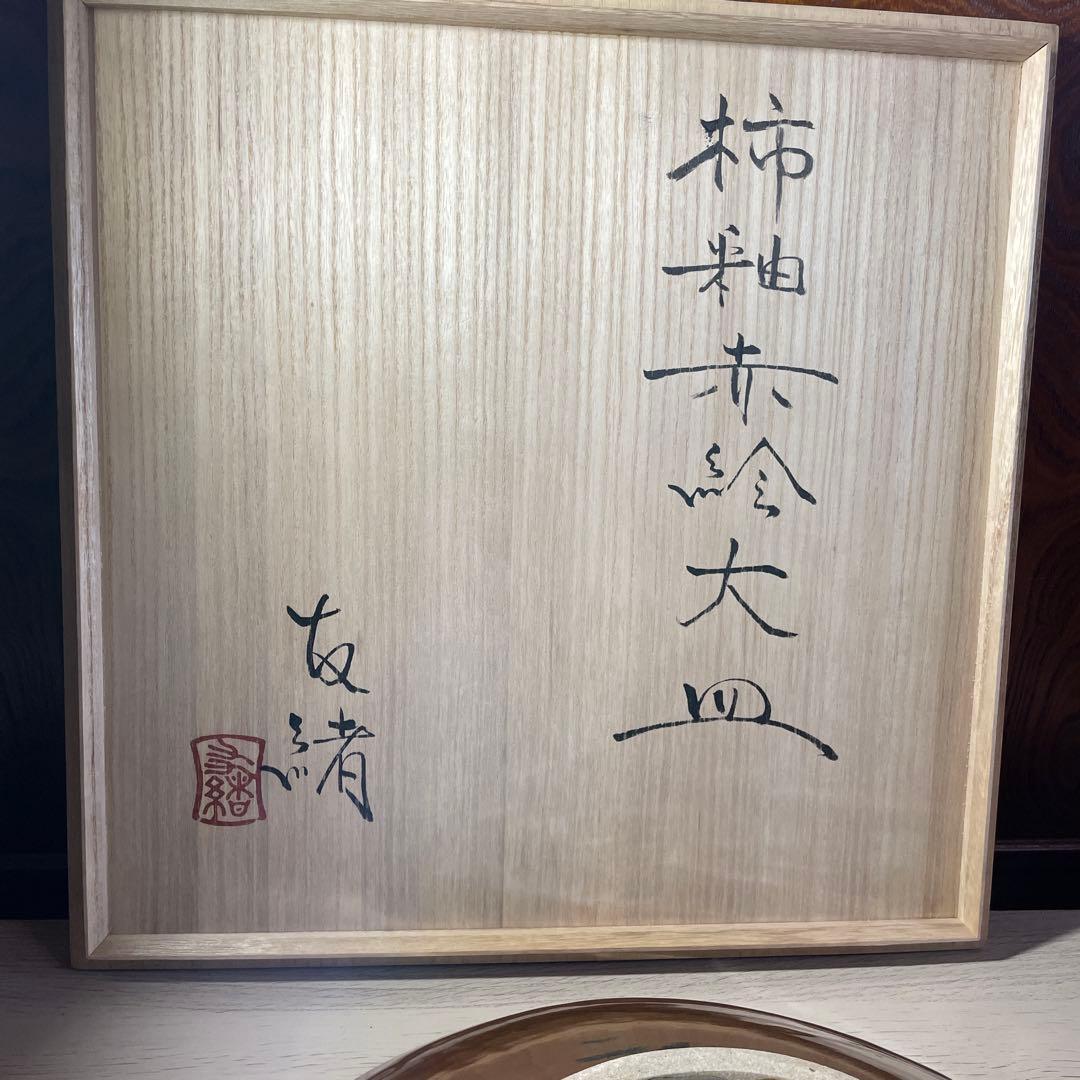 柿釉赤絵大皿
友緒
友緒